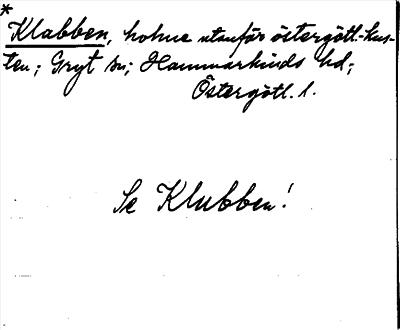 *
Klabben, holme utanför östergötl.-kus-
ten; Gryt sn; Hammarkinds hd;
Östergötl. l.
Se Klubben!